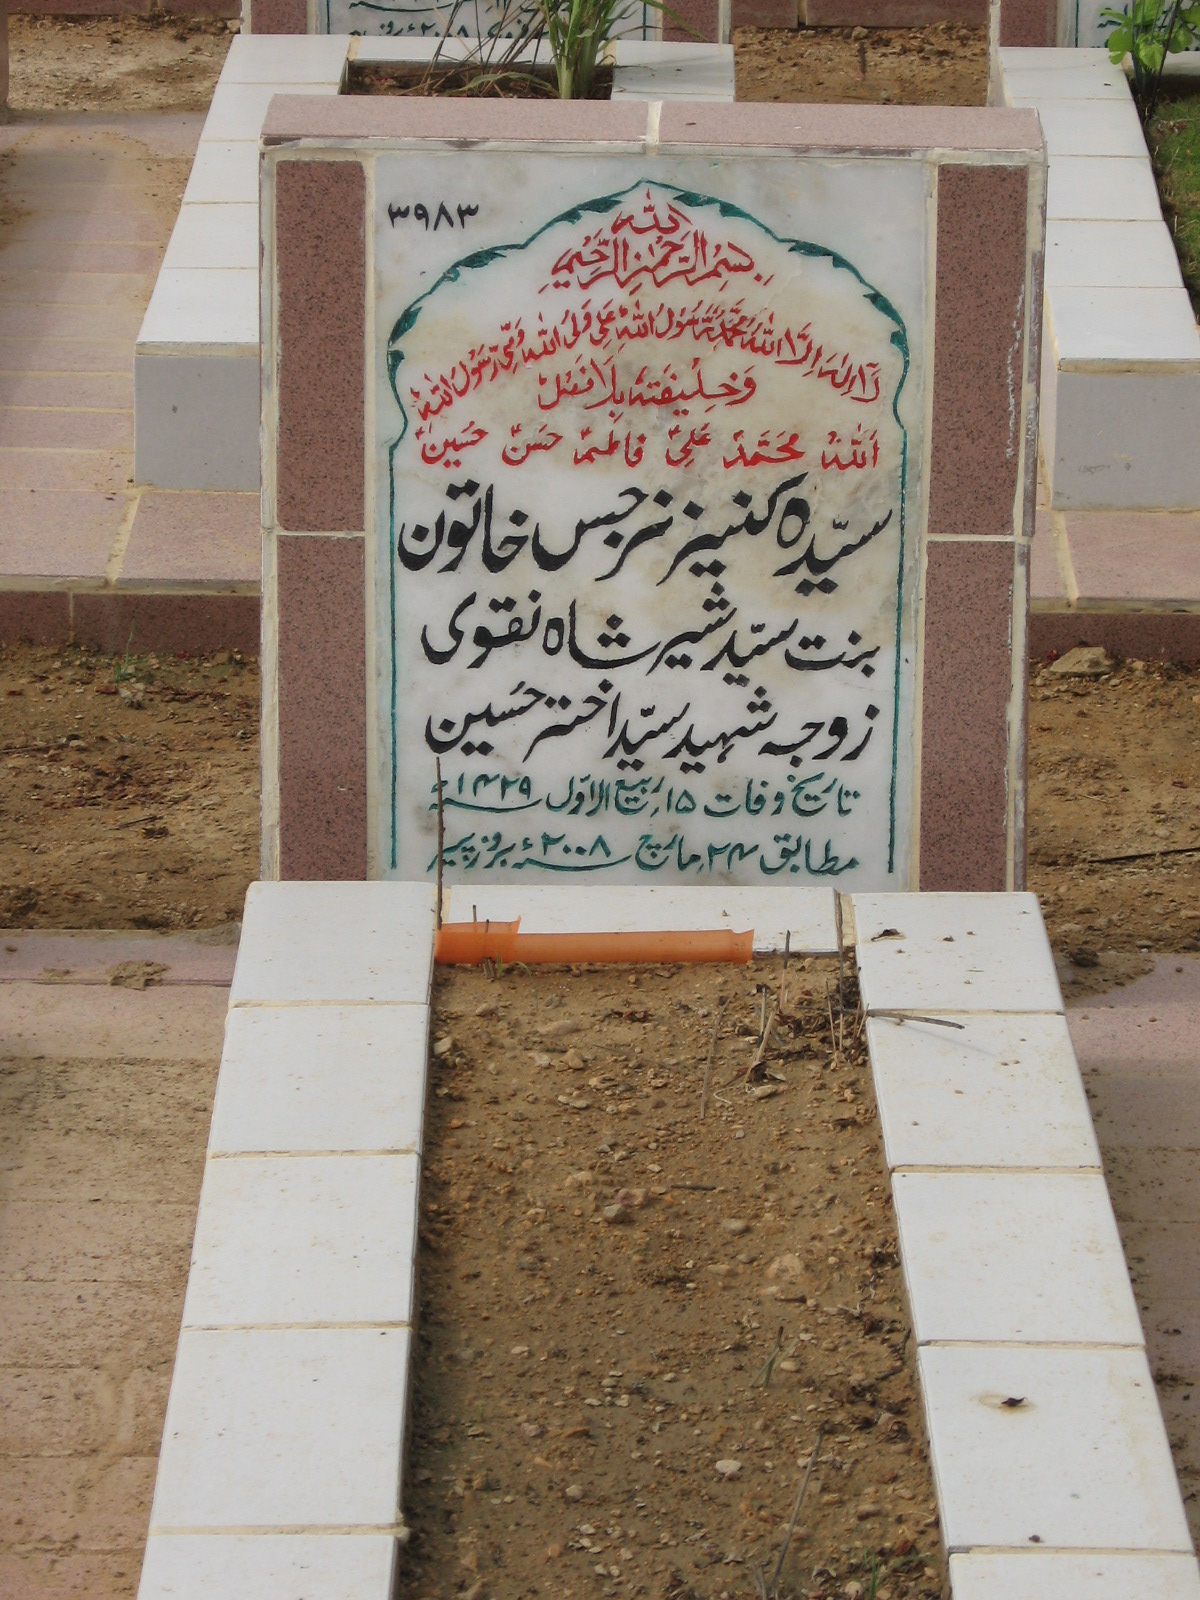 ۳۹۸۳
بِسْمِ اللہِ الرَّحْمٰنِ الرَّحِیْمِ
لَآ اِلٰہَ اِلَّا اللّٰہُ مُحَمَّدٌ رَّسُوْلُ اللّٰہِ عَلِیٌّ وَلِیُّ اللّٰہِ وَصِیُّ رَسُوْلِ اللّٰہِ
وَخَلِیْفَتُہٗ بِلَا فَصْلٍ
اَللّٰہُ مُحَمَّدٌ عَلِیٌّ فاطمہؑ حَسَنٌ حُسَیْنٌ
سیّدہ کنیز نرجس خاتون
بنت سیّد شیر شاہ نقوی
زوجہ شہید سیّد اختر حُسین
تاریخ وفات ۱۵ ربیع الاوّل ۱۴۲۹ھ
مطابق ۲۴ مارچ ۲۰۰۸ء بروز پیر